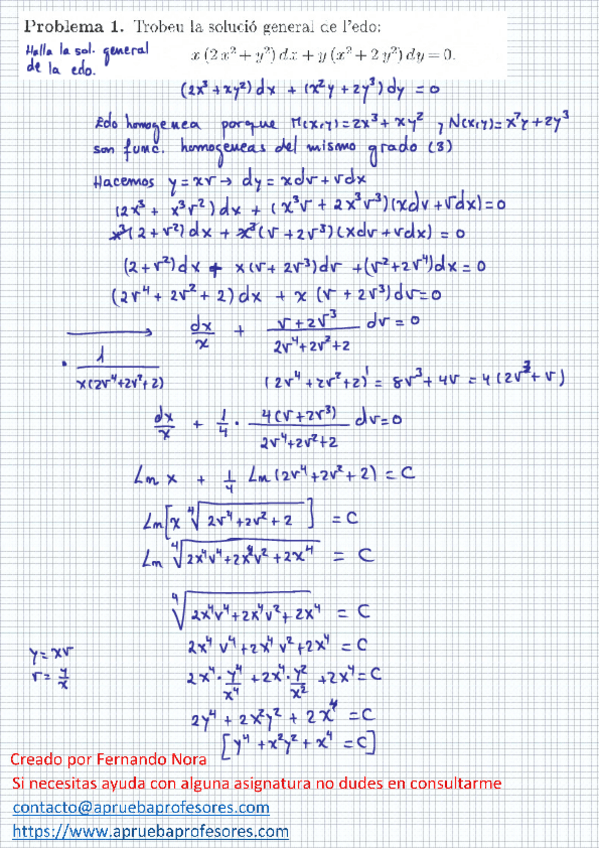 Problema 1. Trobeu la solució general de l'edo:
Halla la sol. general
de la edo.
x (2x² + y²) dx + y (x² + 2y²) dy = 0.
(2x³ + xy²) dx + (x²y + 2y³) dy = 0
Edo homogenea porque M(x,y) = 2x³ + xy² , N(x,y) = x²y + 2y³
son func. homogeneas del mismo grado (3)
Hacemos y = xv → dy = xdv + vdx
(2x³ + x³v²) dx + (x³v + 2x³v³)(xdv + vdx) = 0
x³(2+v²) dx + x³(v + 2v³)(xdv + vdx) = 0
(2+v²)dx + x(v + 2v³)dv + (v²+2v⁴)dx = 0
(2v⁴ + 2v² + 2) dx + x (v + 2v³)dv = 0
dx/x + (v + 2v³)/(2v⁴ + 2v² + 2) dv = 0
· 1/(x(2v⁴+2v²+2))
(2v⁴ + 2v² + 2)' = 8v³ + 4v = 4(2v³ + v)
dx/x + 1/4 · 4(v + 2v³)/(2v⁴+2v²+2) dv = 0
Ln x + 1/4 Ln(2v⁴+2v²+2) = C
Ln[x ⁴√(2v⁴+2v²+2)] = C
Ln ⁴√(2x⁴v⁴+2x⁴v²+2x⁴) = C
⁴√(2x⁴v⁴+2x⁴v²+2x⁴) = C
2x⁴v⁴+2x⁴v²+2x⁴ = C
y = xv
v = y/x
2x⁴· y⁴/x⁴ + 2x⁴· y²/x² + 2x⁴ = C
2y⁴ + 2x²y² + 2x⁴ = C
[y⁴ + x²y² + x⁴ = C]
Creado por Fernando Nora
Si necesitas ayuda con alguna asignatura no dudes en consultarme
contacto@apruebaprofesores.com
https://www.apruebaprofesores.com